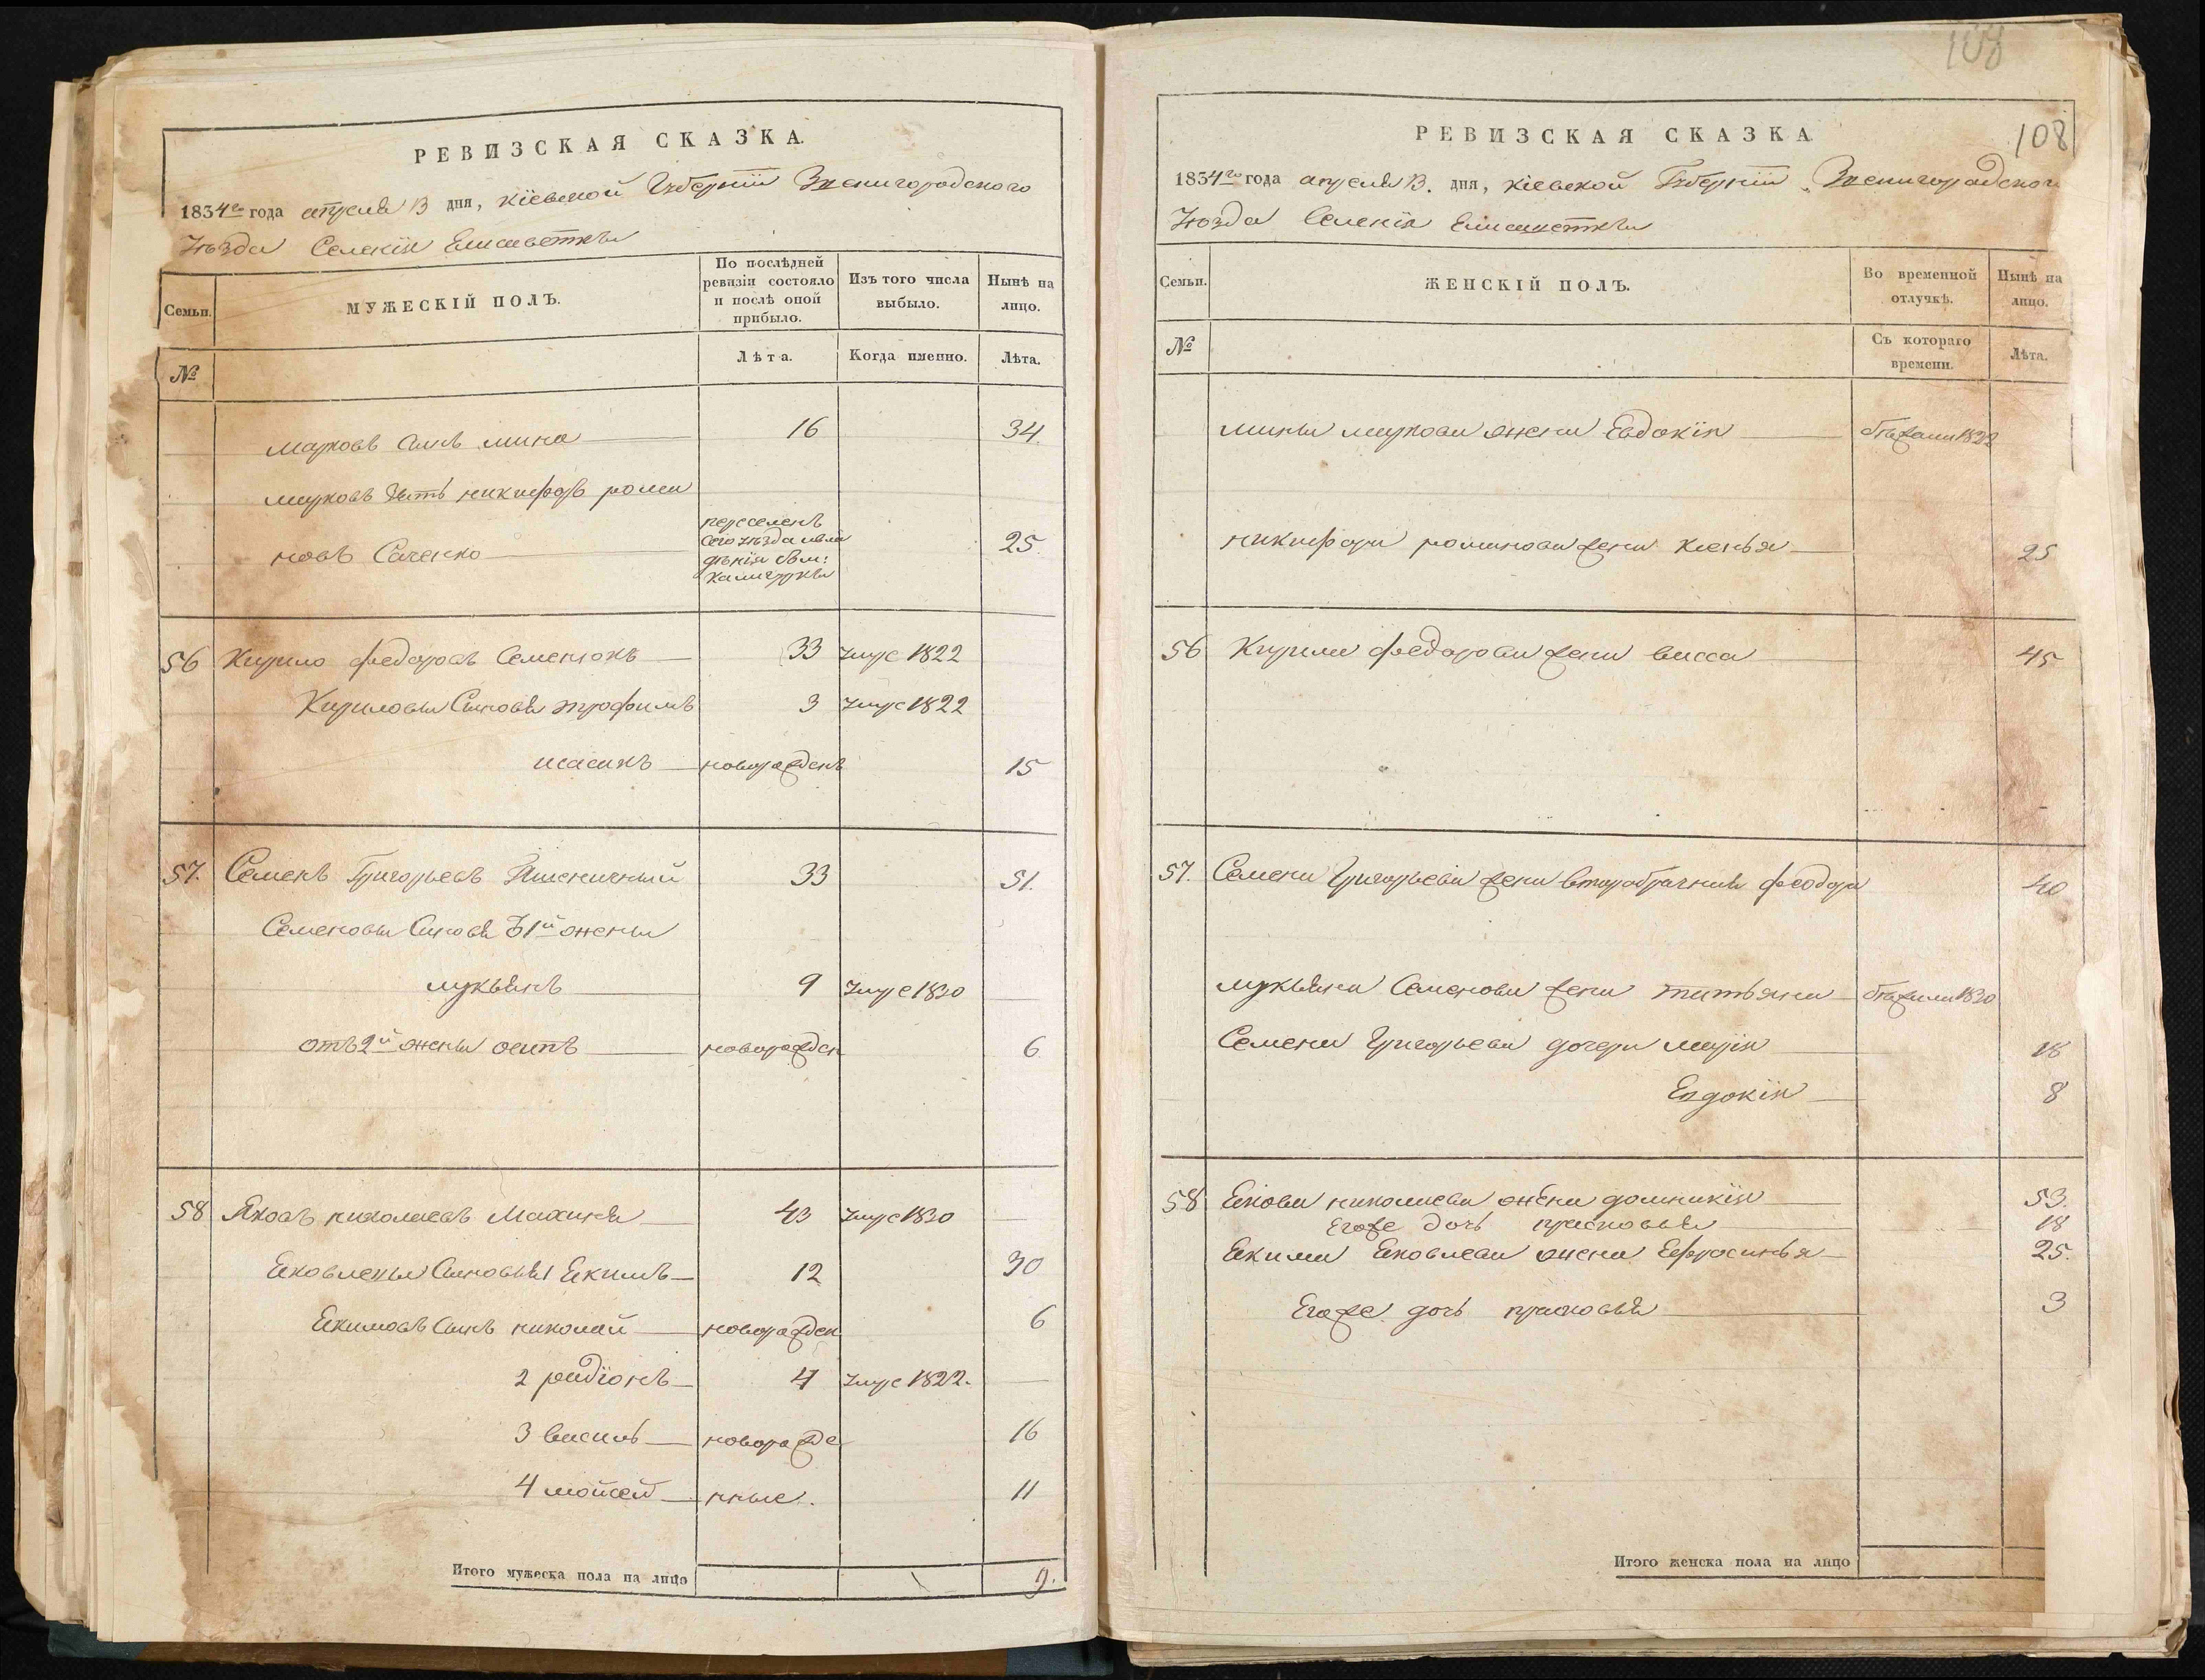 РЕВИЗСКАЯ СКАЗКА.
1834го года апреля 13 дня, Кіевской Губерніи Звенигородского
Уѣзда Селенія Елисаветки
Семьи.
МУЖЕСКІЙ ПОЛЪ.
По послѣдней ревизіи состояло и послѣ оной прибыло.
Изъ того числа выбыло.
Нынѣ на лицо.
№
Лѣта.
Когда именно.
Лѣта.
Марковъ Сынъ Мина 16 34.
Марковъ Зять Никифоръ Рома
новъ Саченко переселенъ сего уѣзда 25.
56 Кирило Федоровъ Семенюкъ 33 Умре 1822
Кириловы Сыновья Трофимъ 3 Умре 1822
новорожденъ 15
57. Семенъ Григорьевъ Пшеничный 33 51.
Семеновы Сыновья 1й жены
Лукьянъ 9 Умре 1830
отъ 2й жены Осипъ новорожден 6
58 Яковъ Николаевъ Махиня 43 Умре 1830
Яковлевы Сыновья 1 Екимъ 12 30
Екимовъ Сынъ Николай новорожден 6
2 радіонъ 4 Умре 1822.
3 Василь новорожде 16
4 Мойсей нные. 11
Итого мужеска пола на лицо 9.
108
108
РЕВИЗСКАЯ СКАЗКА
1834го года апреля 13. дня, Кіевской Губерніи Звенигородского
Уѣзда Селенія Елисаветки
Семьи.
ЖЕНСКІЙ ПОЛЪ.
Во временной отлучкѣ.
Нынѣ на лицо.
№
Съ котораго времени.
Лѣта.
Мины Маркова жена Евдокія 1822
Никифора Романова жена Ксенья 25
56 Кирила Федорова жена Васса 45
57. Семена Григорьева жена второбрачная Феодора 40
Лукьяна Семенова жена Татьяна 1830
Семена Григорьева дочери Марія 18
Евдокія 8
58 Якова Николаева жена Домникія 53.
Егоже дочь Прасковья 18
Екима Яковлева жена Ефросинья 25.
Егоже дочь Прасковья 3
Итого женска пола на лицо